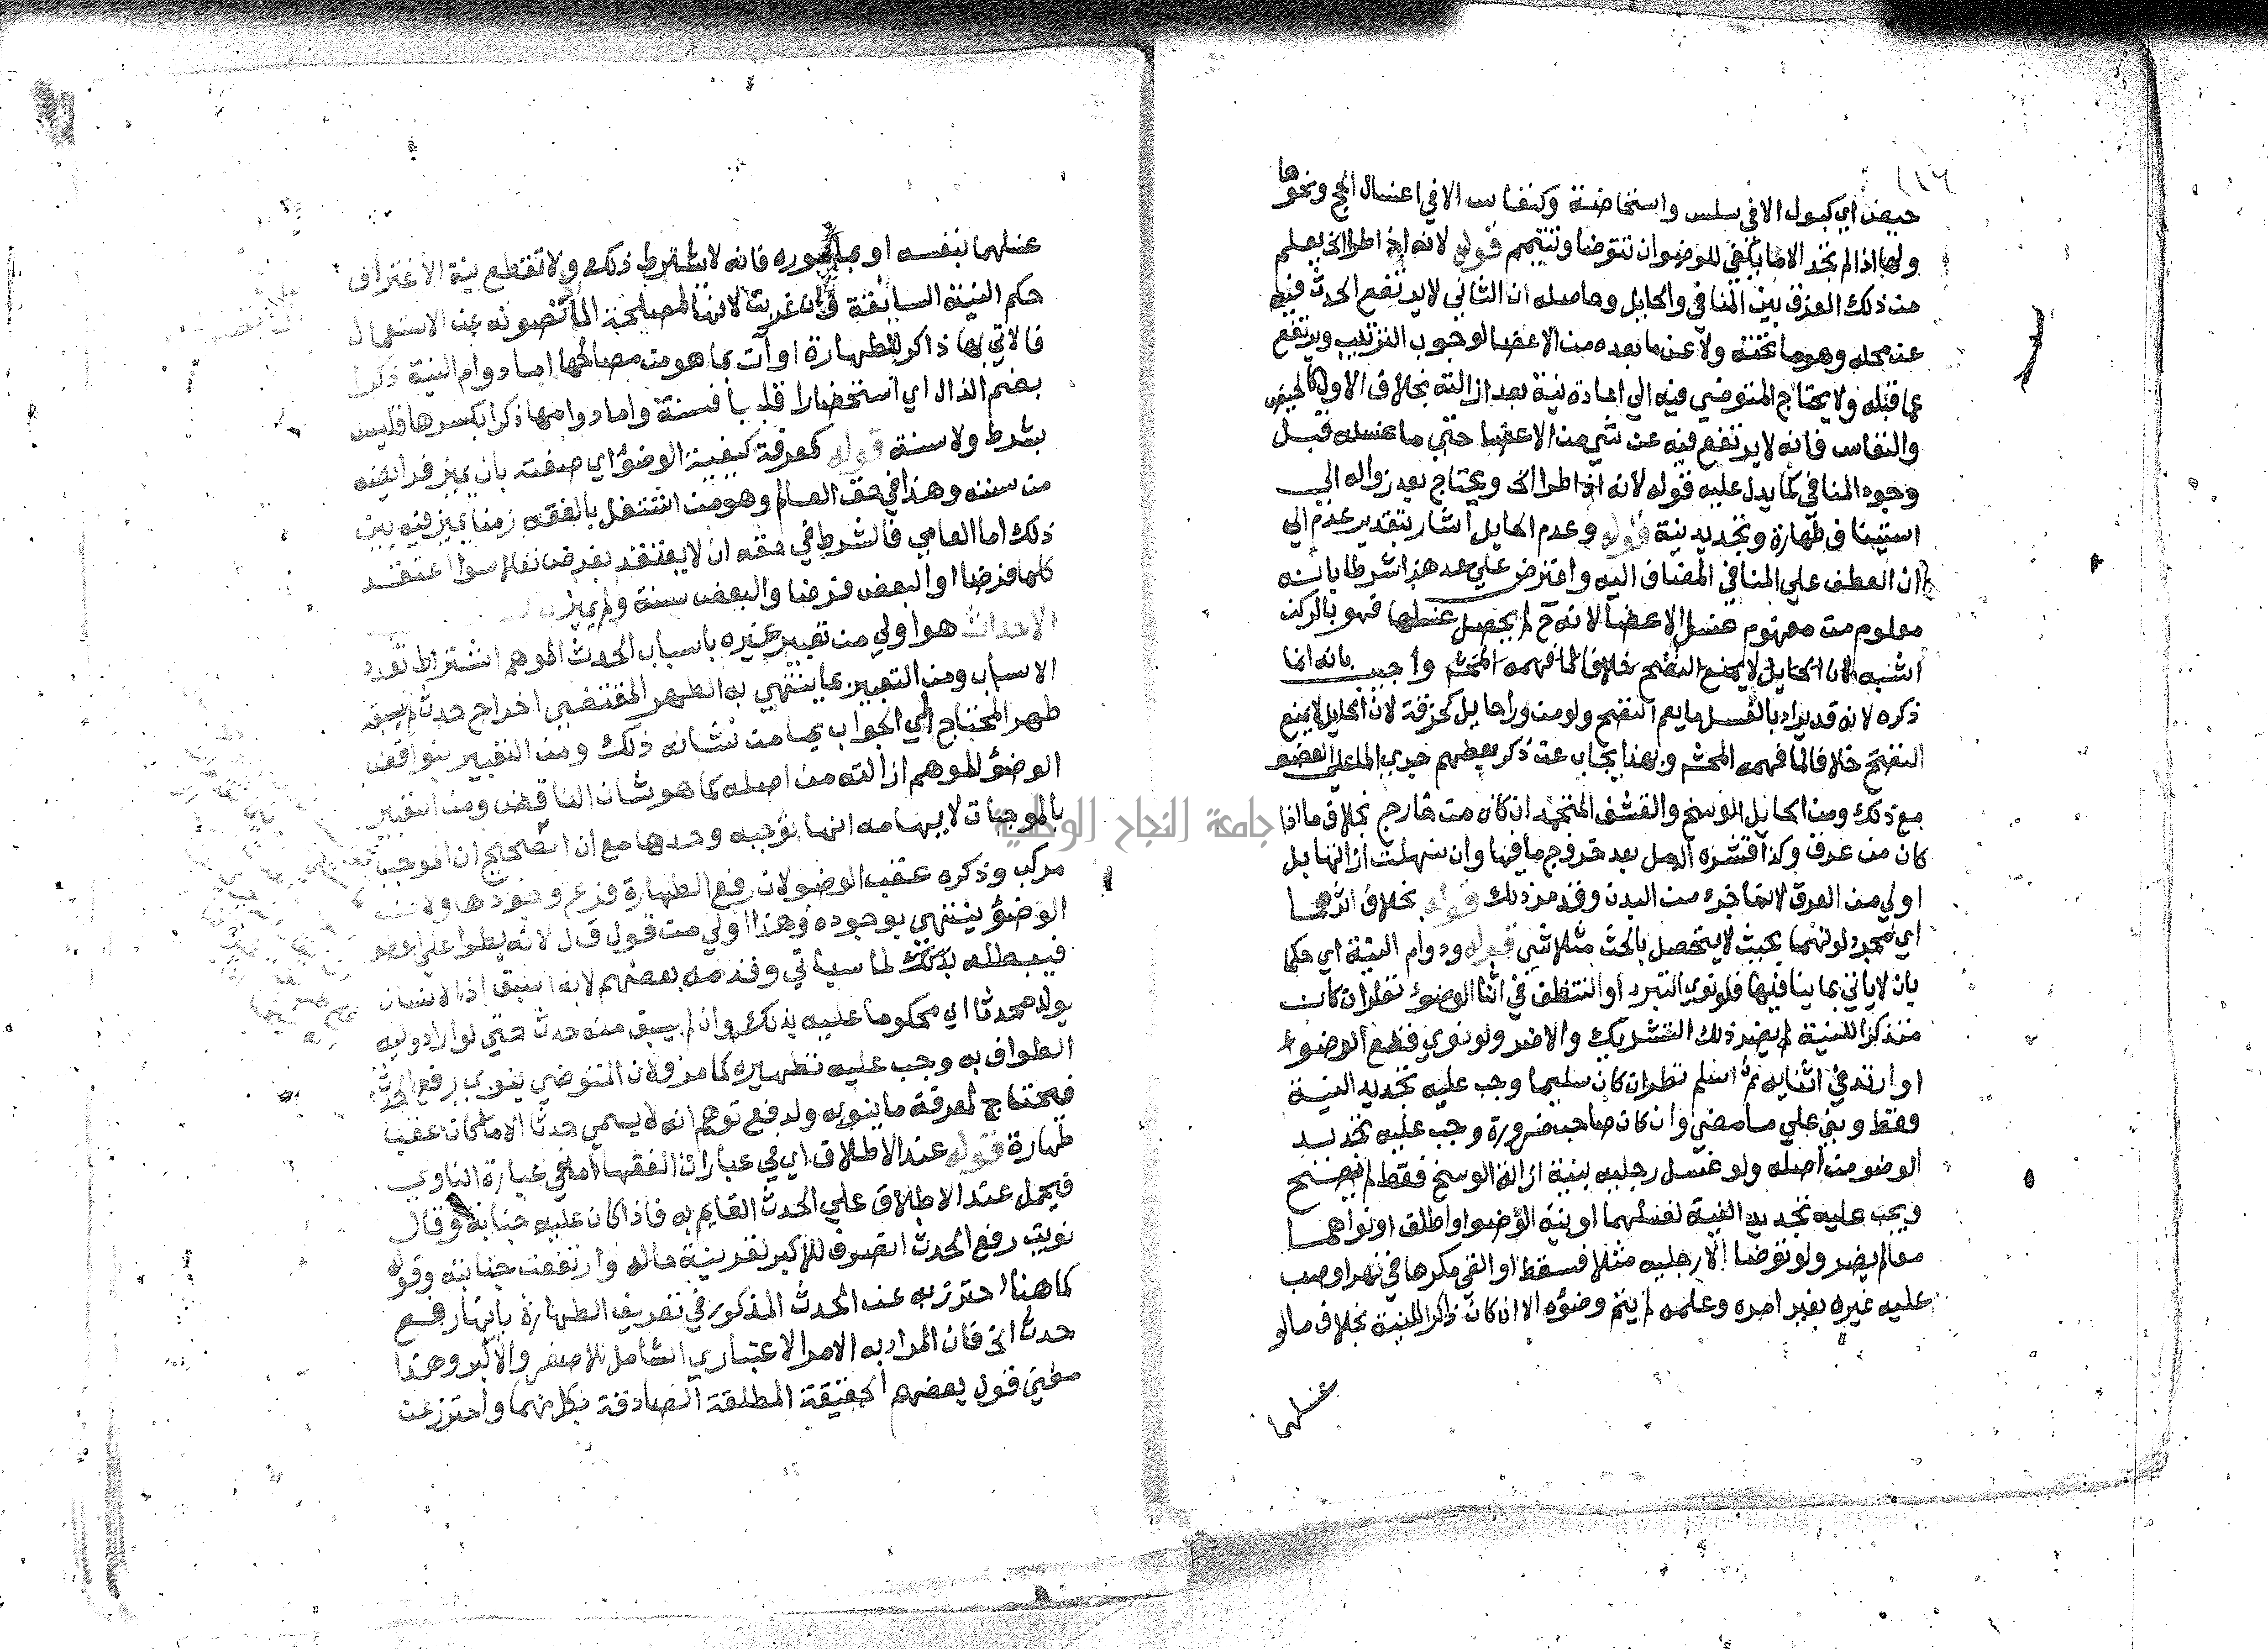 حيض اي كبول الا في سلس واستحاضة وكنفاس الا في اغسال الحج ونحوها
ولها اذا لم تجد الا ما يكفي للوضوء ان تتوضا وتتيمم قوله لانه اذا طرا الخ يعلم
من ذلك الفرق بين المنافي والحايل وحاصله ان الثاني لا يرتفع الحدث فيه
عن محله وهو ما تحته ولا عن ما بعده من الاعضا لوجوب الترتيب ويرتفع
عما قبله ولا يحتاج المتوضي فيه الي اعادة نية بعد ازالته بخلاف الاول كالحيض
والنفاس فانه لا يرتفع فيه عن شي من الاعضا حتي ما غسله قبل
وجود المنافي كما يدل عليه قوله لانه اذا طرا الخ ويحتاج بعد زواله الي
استيناف طهارة وتجديد نية قوله وعدم الحايل اشار بتقدير عدم الي
ان العطف علي المنافي المضاف اليه واعترض علي عد هذا شرطا بانه
معلوم من مفهوم غسل الاعضا لانه ح لم يحصل غسلها فهو بالركن
اشبه لان الحايل لا يمنع النضح خلافا لما فهمه المحشم واجيب بانه انما
ذكره لانه قد يراد بالغسل ما يعم النضح ولو من ورا حايل كخرقة لان الحايل لا يمنع
النضح خلافا لما فهمه المحشم وبهذا يجاب عن ذكر بعضهم جري الما علي العضو
مع ذلك ومن الحايل الوسخ والقشف المتجمد ان كان من خارج بخلاف ما اذا
كان من عرق وكذا قشرة الدمل بعد خروج ما فيها وان سهلت ازالتها بل
اولي من العرق لانها جزء من البدن وقد مر ذلك قوله بخلاف اثرهما
اي مجرد لونهما بحيث لا يتحصل بالحت مثلا شي قوله ودوام النية اي حكما
بان لا ياتي بما ينافيها فلو نوي التبرد او التنظف في اثنا الوضوء نظر ان كان
متذكرا للنية لم يضر ذلك التشريك والا ضر ولو نوي قطع الوضوء
او ارتد في اثنايه ثم اسلم نظر ان كان سليما وجب عليه تجديد النية
فقط وبني علي ما مضي وان كان صاحب ضرورة وجب عليه تجديد
الوضو من اصله ولو غسل رجليه بنية ازالة الوسخ فقط لم يصح
ويجب عليه تجديد النية لغسلهما او بنية الوضوا واطلق او نواهما
معا لم يضر ولو توضا الا رجليه مثلا فسقط او القي مكرها في نهر او صب
عليه غيره بغير امره وعلمه لم يتم وضوه الا ان كان ذاكرا للنية بخلاف ما لو
غسلها
غسلهما بنفسه او بماموره فانه لا يشترط ذلك ولا تقطع نية الاغتراف
حكم النية السابقة وان عزبت لانها لمصلحة الما تصونه عن الاستعمال
فالاتي بها ذاكر للطهارة او آت بما هو من مصالحها اما دوام النية ذكرا
بضم الذال اي استحضارا قلبيا فسنة واما دوامها ذكرا بكسرها فليس
بشرط ولا سنة قوله كمعرفة كيفية الوضوء اي صفته بان يميز فرايضه
من سننه وهذا في حق العالم وهو من اشتغل بالفقه زمنا يميز فيه بين
ذلك اما العامي فالشرط في حقه ان لا يعتقد بفرض نفلا سوا اعتقد
كلها فرضا او البعض فرضا والبعض سنة ولم يميز
الاحداث هو اولي من تعبير غيره باسباب الحدث الموهم اشتراط تعدد
الاسباب ومن التعبير بما ينتهي به الطهر المقتضي اخراج حدث لم يسبقه
طهر المحتاج الي الجواب بما من شانه ذلك ومن التعبير بنواقض
الوضوء الموهم ازالته من اصله كما هو شان الناقض ومن التعبير
بالموجبات لايهامه انها توجبه وحدها مع ان الصحيح ان الموجب
مركب وذكره عقب الوضو لان رفع الطهارة فرع وجودها ولان
الوضوء ينتهي بوجوده وهذا اولي من قول ق ل لانه يطرا علي الوضو
فيبطله بذلك لما سياتي وقدمه بعضهم لانه اسبق اذ الانسان
يولد محدثا اي محكوما عليه بذلك وان لم يسبق منه حدث حتي لو اراد وليه
الطواف به وجب عليه تطهيره كما مر ولان المتوضي ينوي رفع الحدث
فيحتاج لمعرفة ما ينويه ولدفع توهم انه لا يسمي حدثا الا ما كان عقب
طهارة قوله عند الاطلاق اي في عبارات الفقها اما في عبارة الناوي
فيحمل عند الاطلاق علي الحدث القايم به فاذا كان عليه جنابة وقال
نويت رفع الحدث انصرف للاكبر لقرينة حاله وارتفعت جنابته وقوله
كما هنا احترز به عن الحدث المذكور في تعريف الطهارة بانها رفع
حدث الخ فان المراد به الامر الاعتباري الشامل للاصغر والاكبر وهذا
معني قول بعضهم الحقيقة المطلقة الصادقة بكل منهما واحترز عن
جامعة النجاح الوطنية